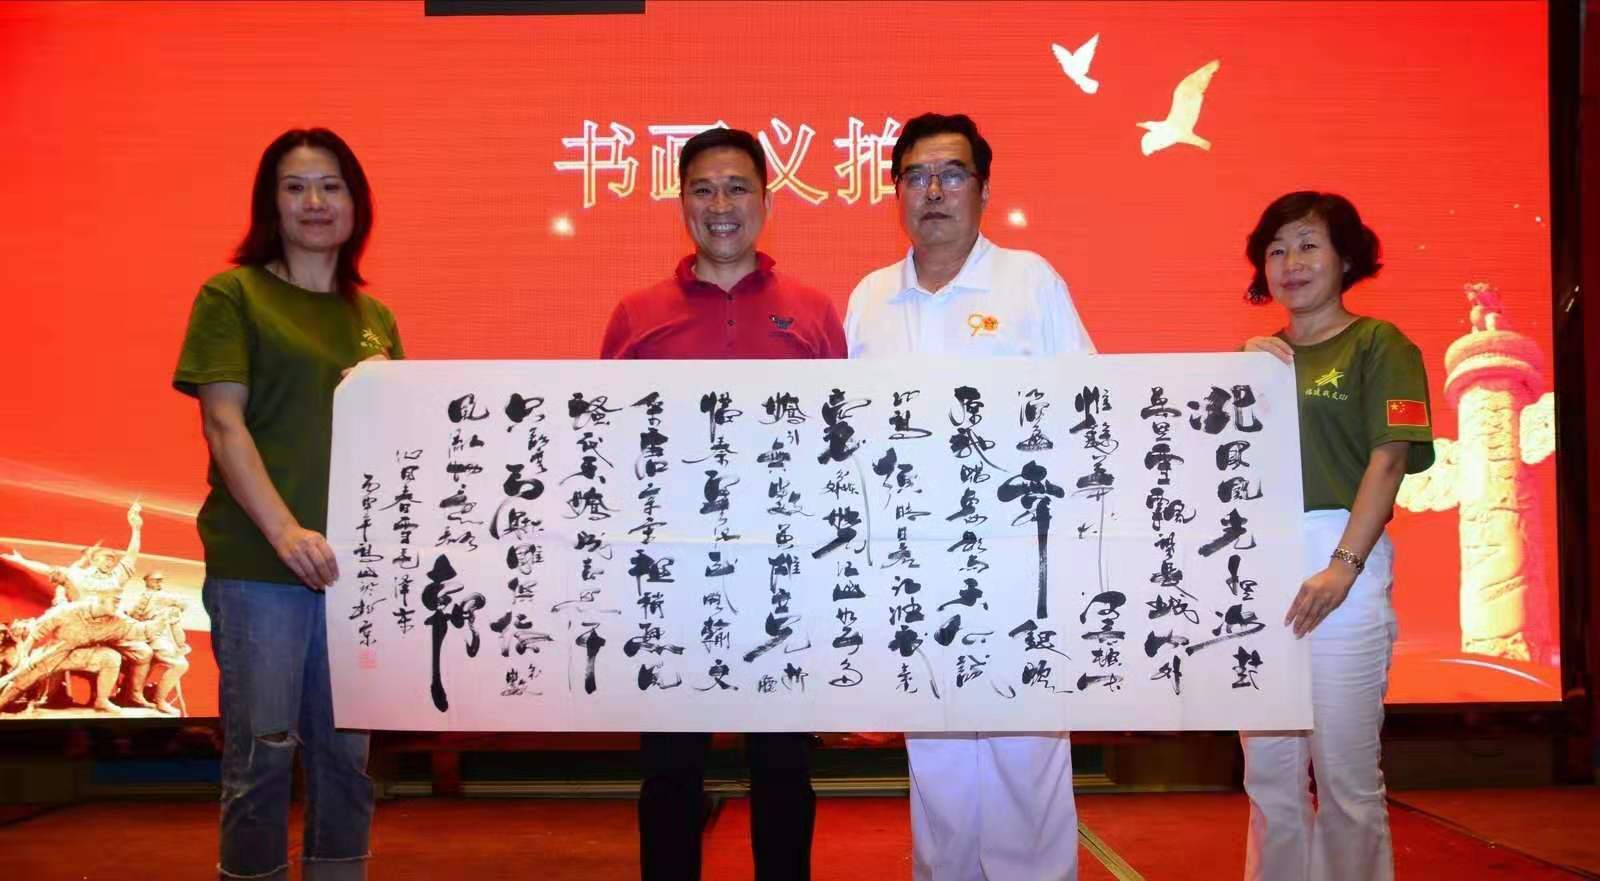 书画义拍
北国风光千里冰封
万里雪飘望长城内外
惟馀莽莽大河上下
滔滔山舞银蛇
原驰蜡象欲与天公试
比高须晴日看红装素裹
分外妖娆江山如此多
娇引无数英雄竞折腰
惜秦皇汉武略输文
采唐宗宋祖稍逊风
骚一代天骄成吉思汗
只识弯弓射大雕俱往矣数
风流人物还看今朝
沁园春雪毛泽东
丙申年
90